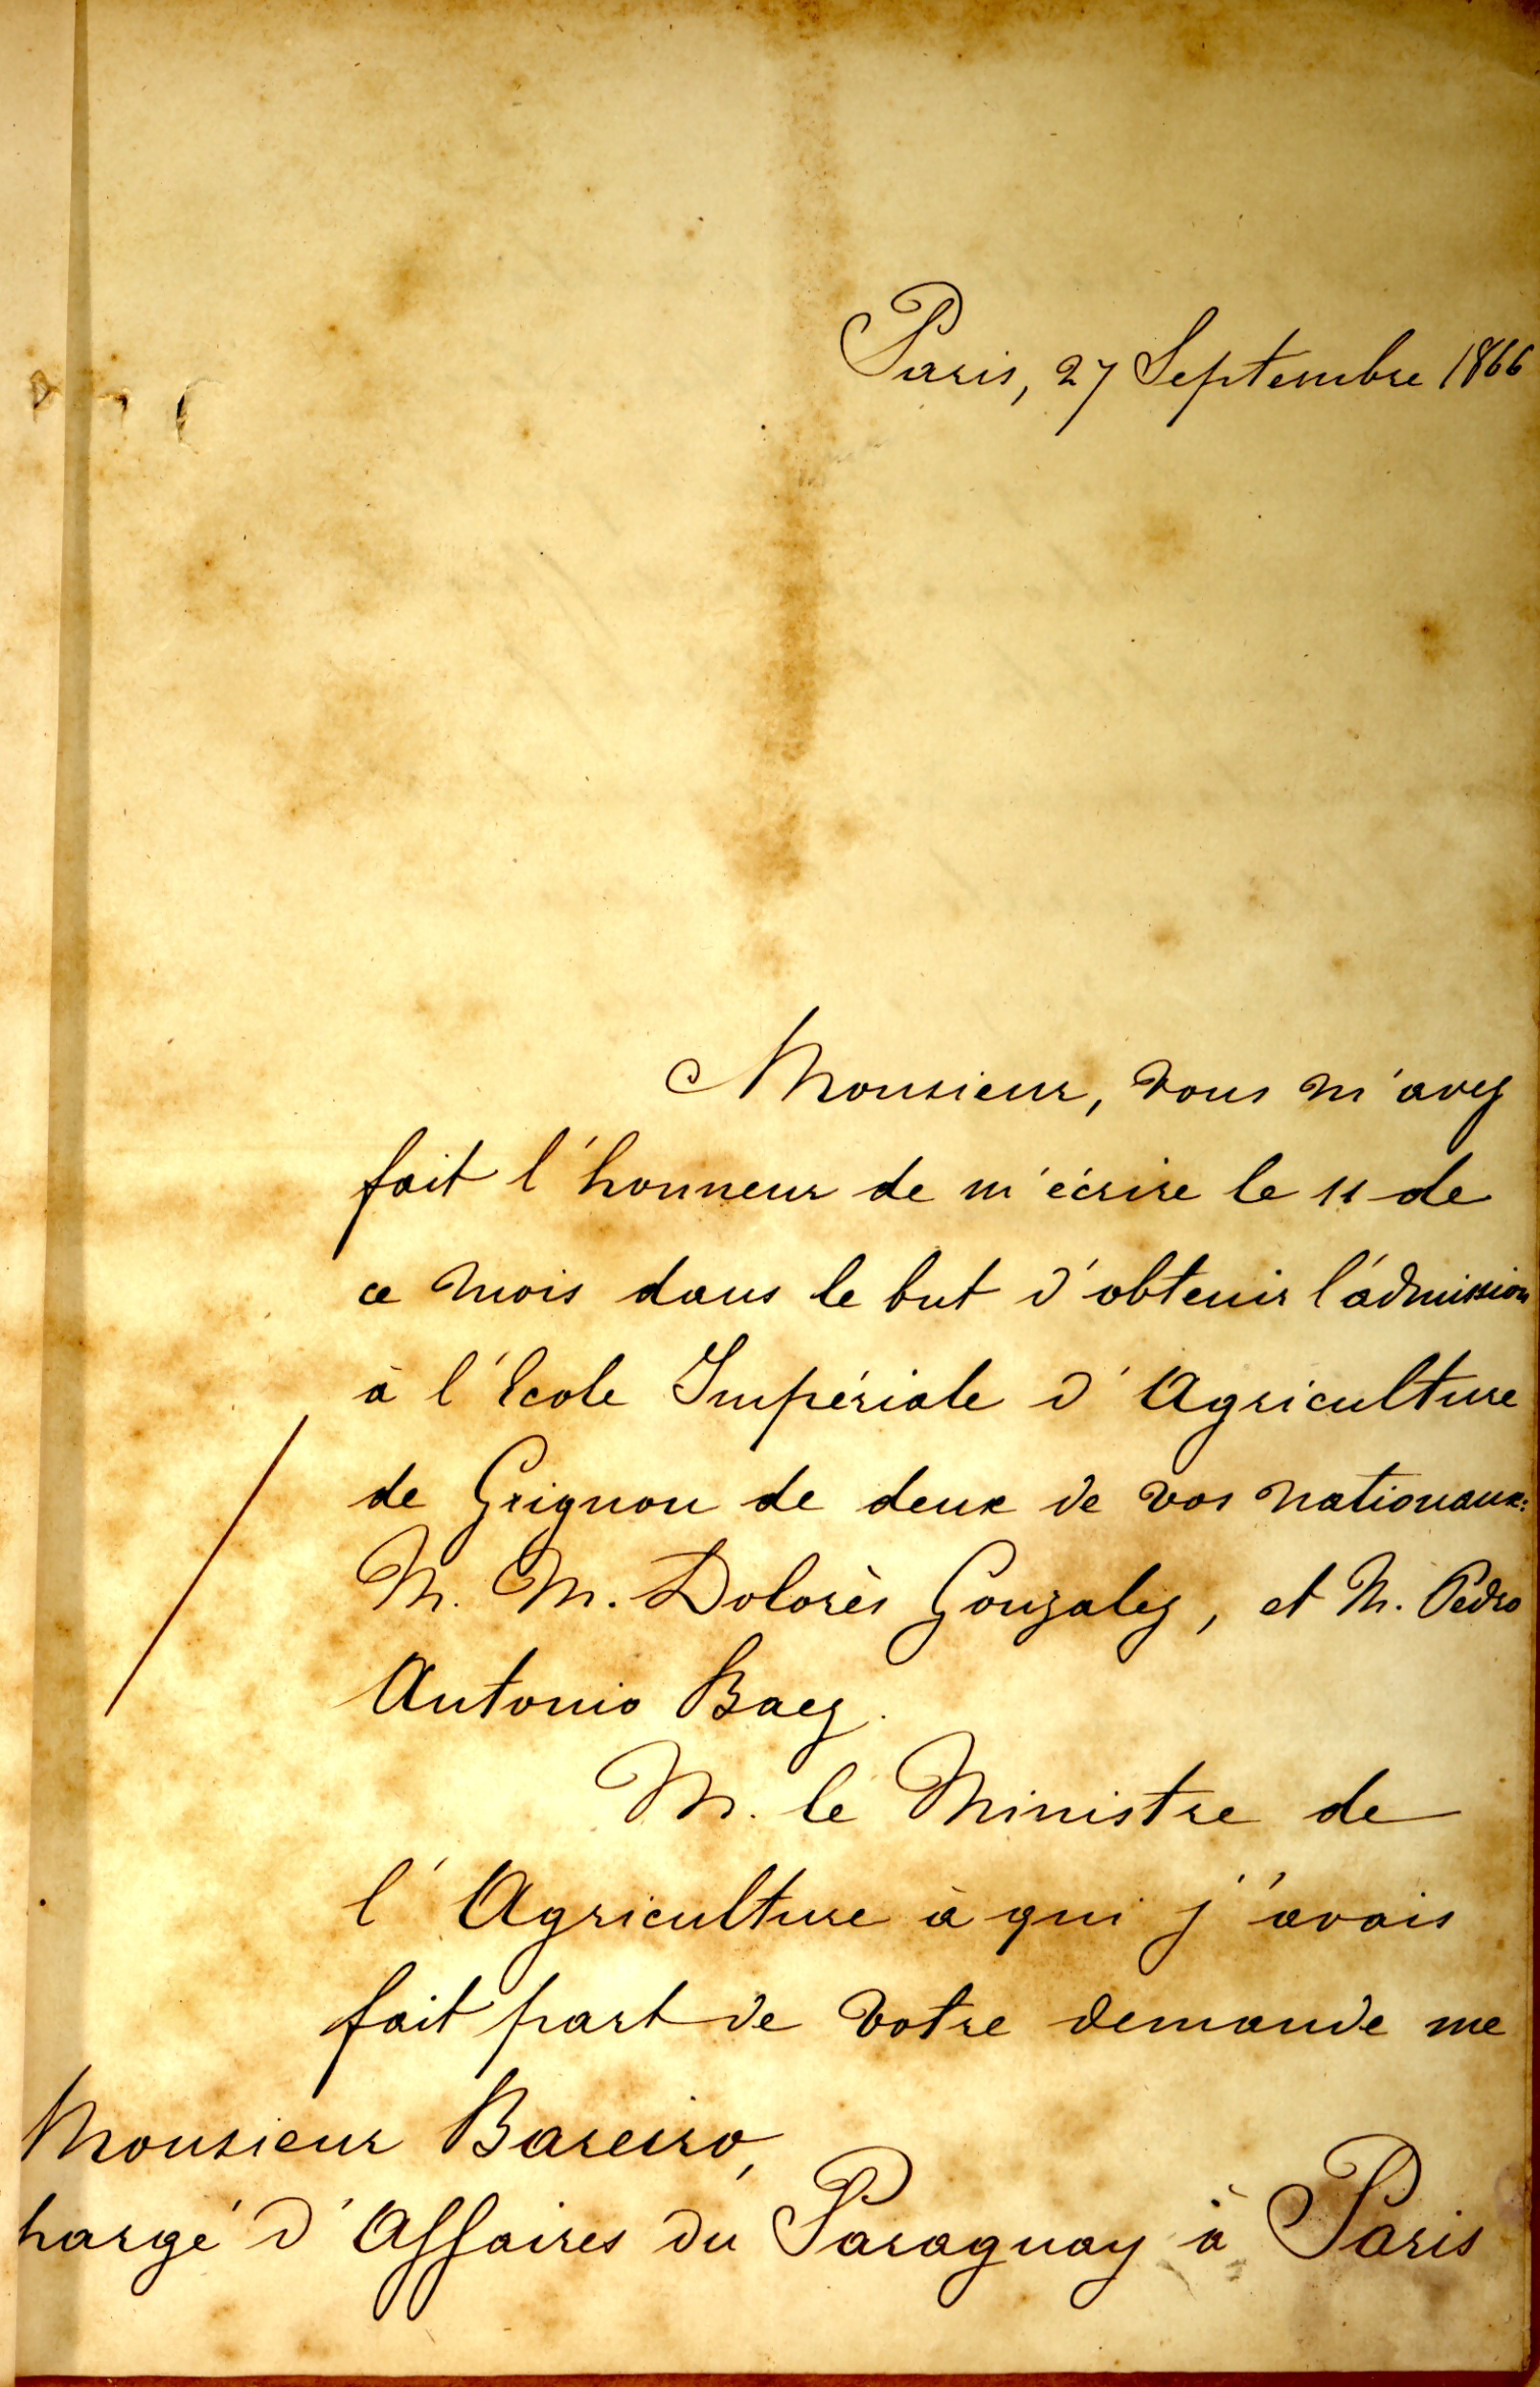 Paris, 27 Septembre 1866
Monsieur, vous m'avez
fait l'honneur de m'écrire le 11 de
ce mois dans le but d'obtenir l'admission
à l'École Impériale d'Agriculture
de Grignon de deux de vos nationaux:
M. M. Dolorès Gonzalez, et M. Pedro
Antonio Baez.
M. le Ministre de
l'Agriculture à qui j'avais
fait part de votre demande me
Monsieur Bareiro,
hargé d'Affaires du Paraguay à Paris